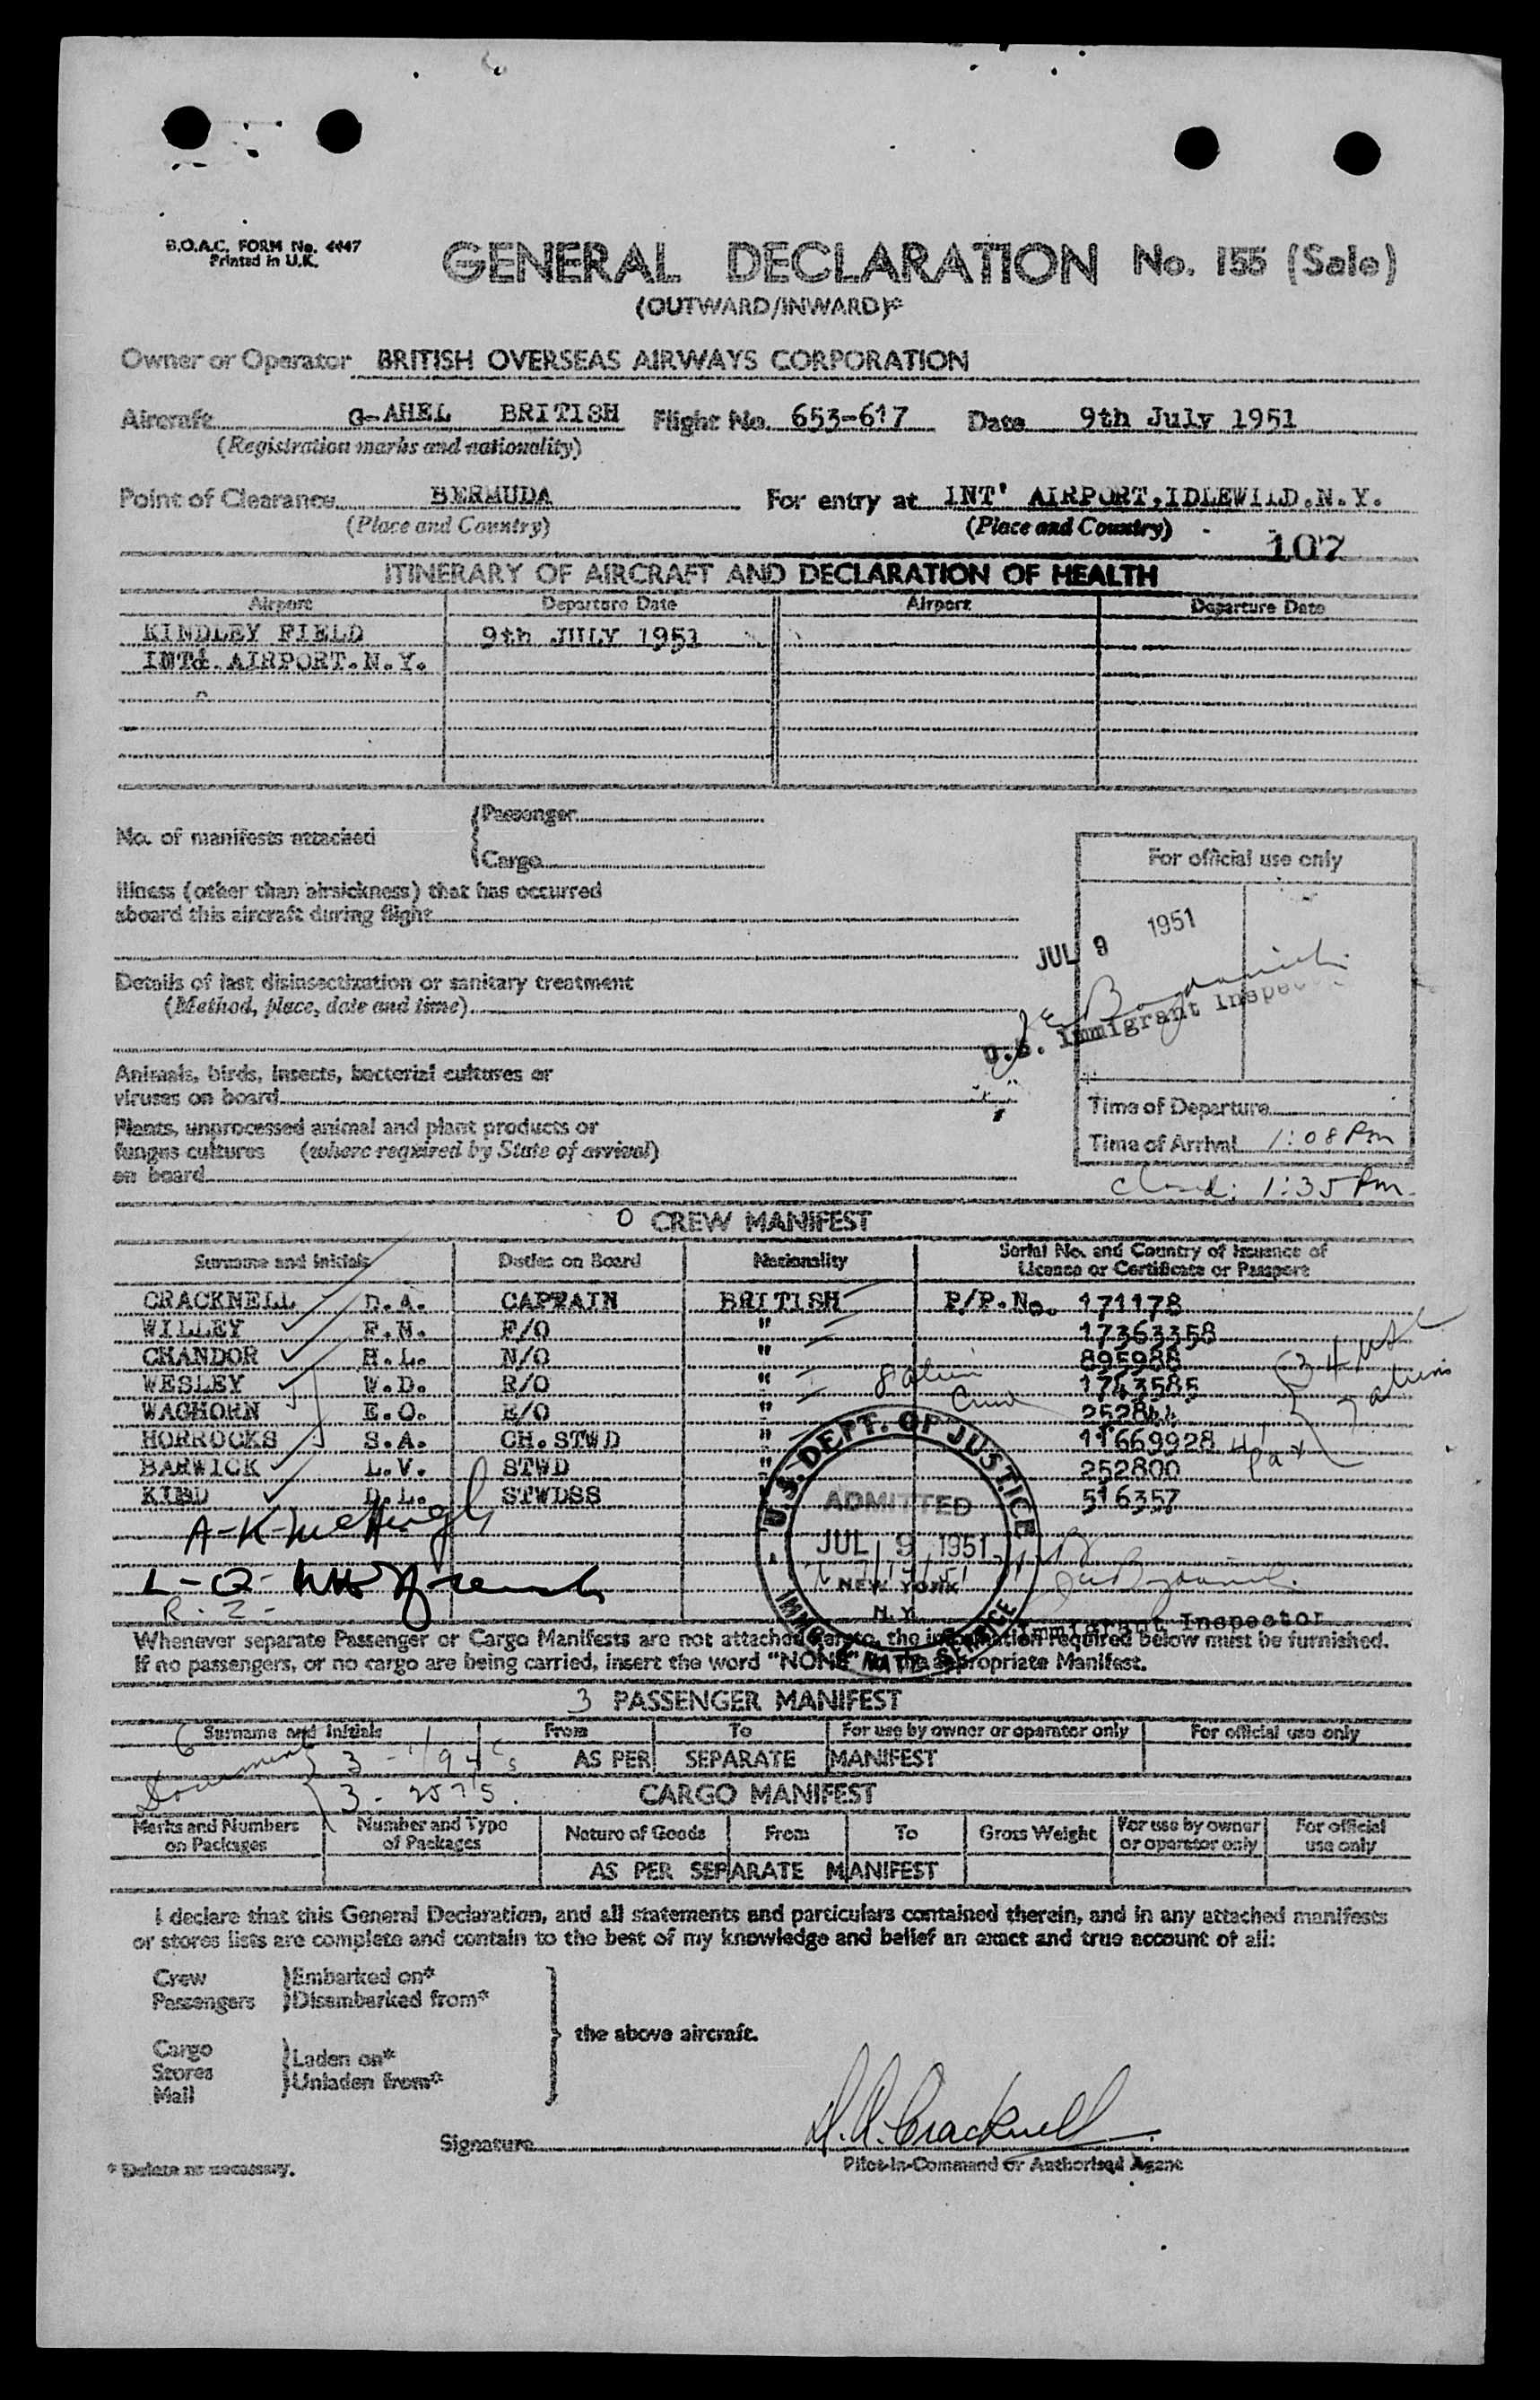 B.O.A.C. FORM No. 4447
Printed in U.K.
GENERAL DECLARATION No. 155 (Sale)
(OUTWARD/INWARD)*
Owner or Operator BRITISH OVERSEAS AIRWAYS CORPORATION
Aircraft G-AHEL BRITISH Flight No. 653-617 Date 9th July 1951
(Registration marks and nationality)
Point of Clearance BERMUDA For entry at INT' AIRPORT, IDLEWILD, N.Y.
(Place and Country) (Place and Country)
107
ITINERARY OF AIRCRAFT AND DECLARATION OF HEALTH
Airport Departure Date Airport Departure Date
KINDLEY FIELD 9th JULY 1951
INTL AIRPORT. N.Y.
No. of manifests attached {Passenger
{Cargo
For official use only
Illness (other than airsickness) that has occurred
aboard this aircraft during flight
JUL 9 1951
Details of last disinsectization or sanitary treatment
(Method, place, date and time)
U.S. Immigrant Inspector
Animals, birds, insects, bacterial cultures or
viruses on board
Time of Departure
Plants, unprocessed animal and plant products or
fungus cultures (where required by State of arrival)
on board
Time of Arrival 1:08 Pm
Closed: 1:35 Pm.
0 CREW MANIFEST
Surname and Initials Duties on Board Nationality Serial No. and Country of Issuance of
Licence or Certificate or Passport
CRACKNELL D.A. CAPTAIN BRITISH P/P.No. 171178
WILLEY F.N. F/O " 17363358
CHANDOR H.L. N/O " 895988
WESLEY W.D. R/O " 1743585
WAGHORN E.O. E/O "
HORROCKS S.A. CH. STWD " 11669928
BARWICK L.V. STWD " 252800
KIDD D.L. STWDSS 516357
8 alien
Crew
3 4 USC
7 aliens
U.S. DEPT. OF JUSTICE
ADMITTED
JUL 9 1951
NEW YORK
N.Y.
Immigrant Inspector
Whenever separate Passenger or Cargo Manifests are not attached hereto, the information required below must be furnished.
If no passengers, or no cargo are being carried, insert the word "NONE" in the appropriate Manifest.
3 PASSENGER MANIFEST
Surname and Initials From To For use by owner or operator only For official use only
AS PER SEPARATE MANIFEST
CARGO MANIFEST
Marks and Numbers on Packages Number and Type of Packages Nature of Goods From To Gross Weight For use by owner or operator only For official use only
AS PER SEPARATE MANIFEST
I declare that this General Declaration, and all statements and particulars contained therein, and in any attached manifests
or stores lists are complete and contain to the best of my knowledge and belief an exact and true account of all:
Crew }Embarked on*
Passengers }Disembarked from*
the above aircraft.
Cargo
Stores }Laden on*
Mail }Unladen from*
Signature D.A. Cracknell
Pilot-in-Command or Authorised Agent
* Delete as necessary.